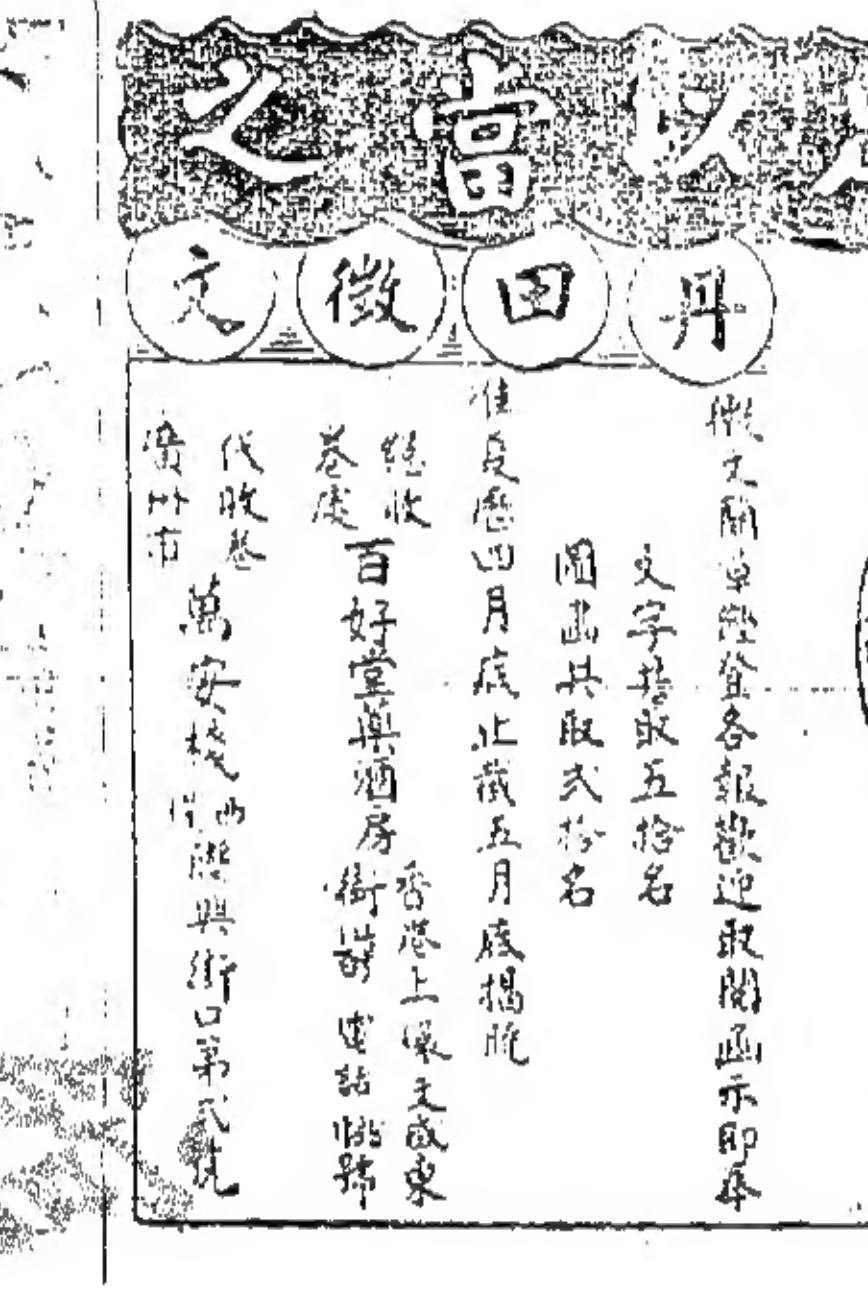 以當之
丹田徵文
徵文簡章經登各報歡迎取閱函示即奉
文字共取五拾名
圖画共取弍拾名
准夏歷四月底止截五月底揭曉
總收卷處
百好堂藥酒房
香港上環文咸東街 電話 號
代收卷
廣州市
萬安棧
西 興街口第弍號